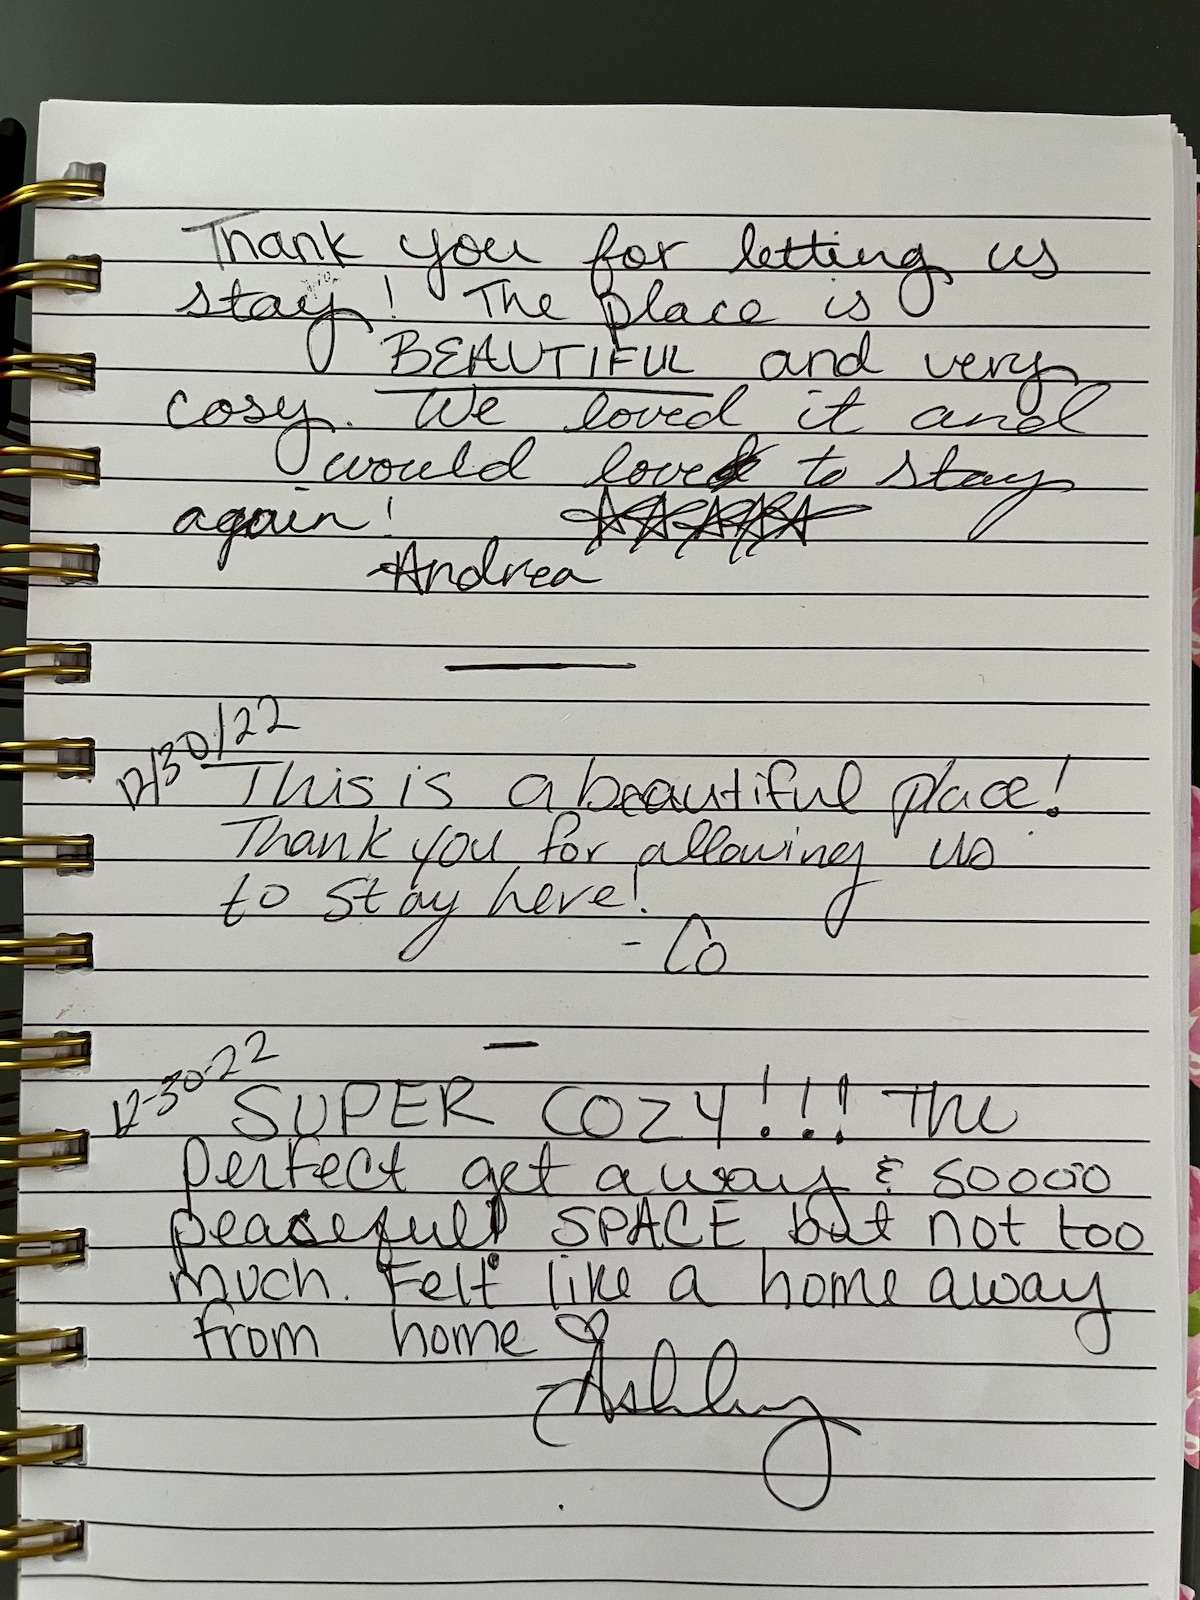 Thank you for letting us
stay! The place is
BEAUTIFUL and very
cosy. We loved it and
would love to stay
again!
Andrea
12/30/22
This is a beautiful place!
Thank you for allowing us
to stay here!
- Co
12-30-22
SUPER COZY!!! The
perfect get away & soooo
peaceful SPACE but not too
much. Felt like a home away
from home ♡
Ashley